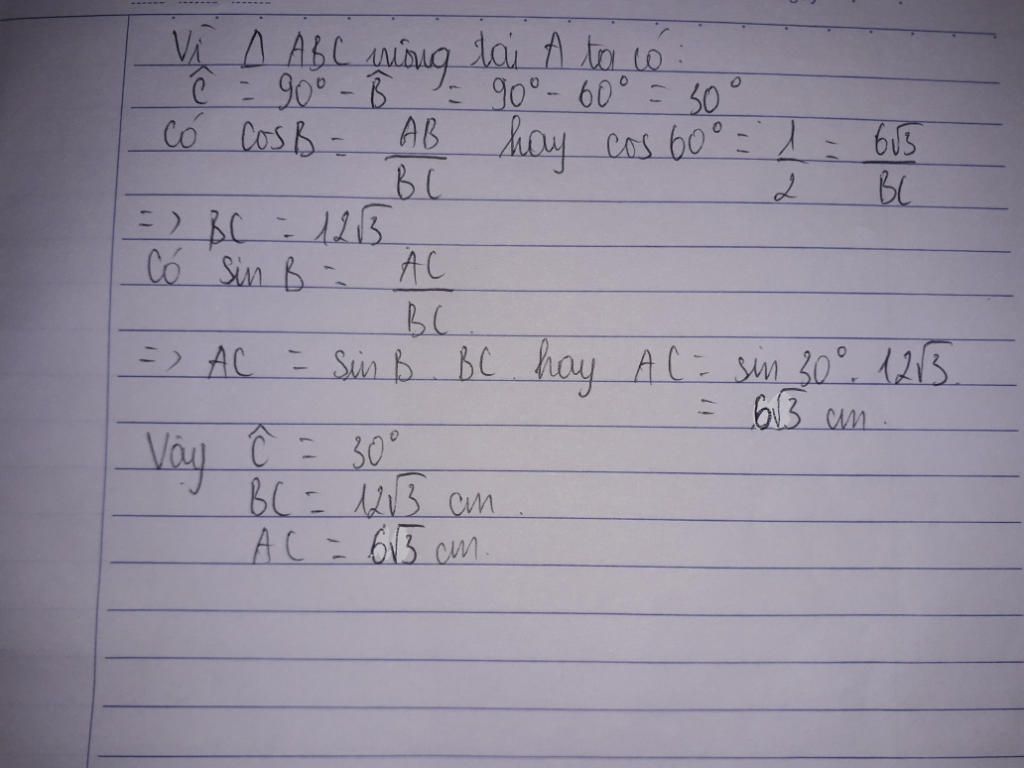 Vì Δ ABC vuông tại A ta có:
Ĉ = 90° - B̂ = 90° - 60° = 30°
Có cosB = AB/BC hay cos 60° = 1/2 = 6√3/BC
=> BC = 12√3
Có sin B = AC/BC
=> AC = sin B. BC hay AC = sin 30°. 12√3.
= 6√3 cm.
Vậy Ĉ = 30°
BC = 12√3 cm.
AC = 6√3 cm.